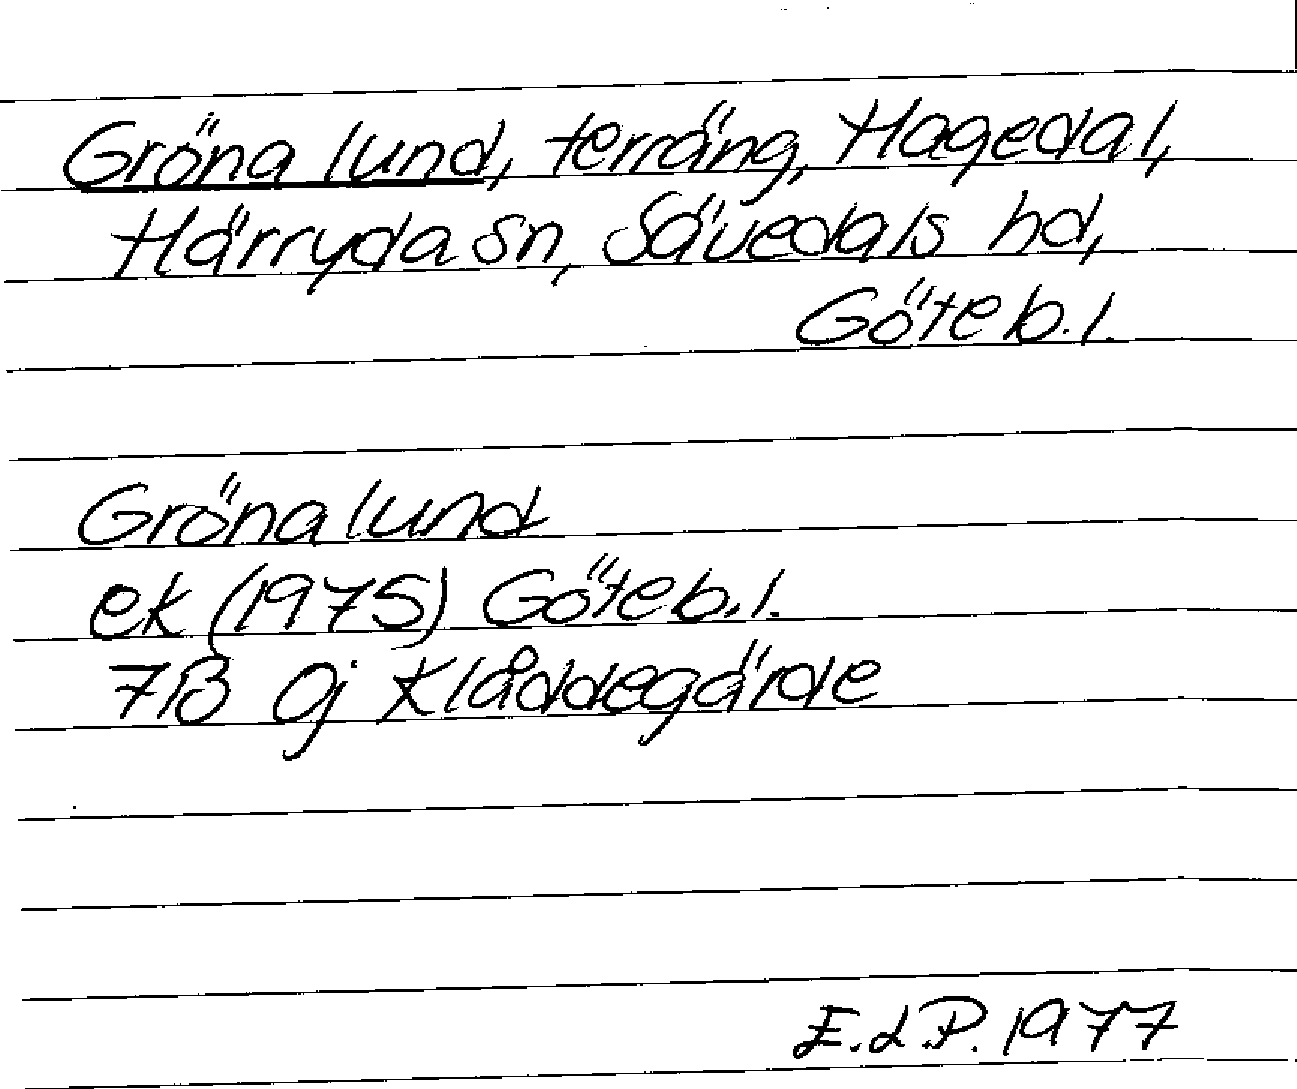 Gröna lund, terräng, Hagedal,
Härryda sn, Sävedals hd,
Göteb. l.
Gröna lund
ek (1975) Göteb. l.
7B 0j Klåddegärde
E.L.P. 1977